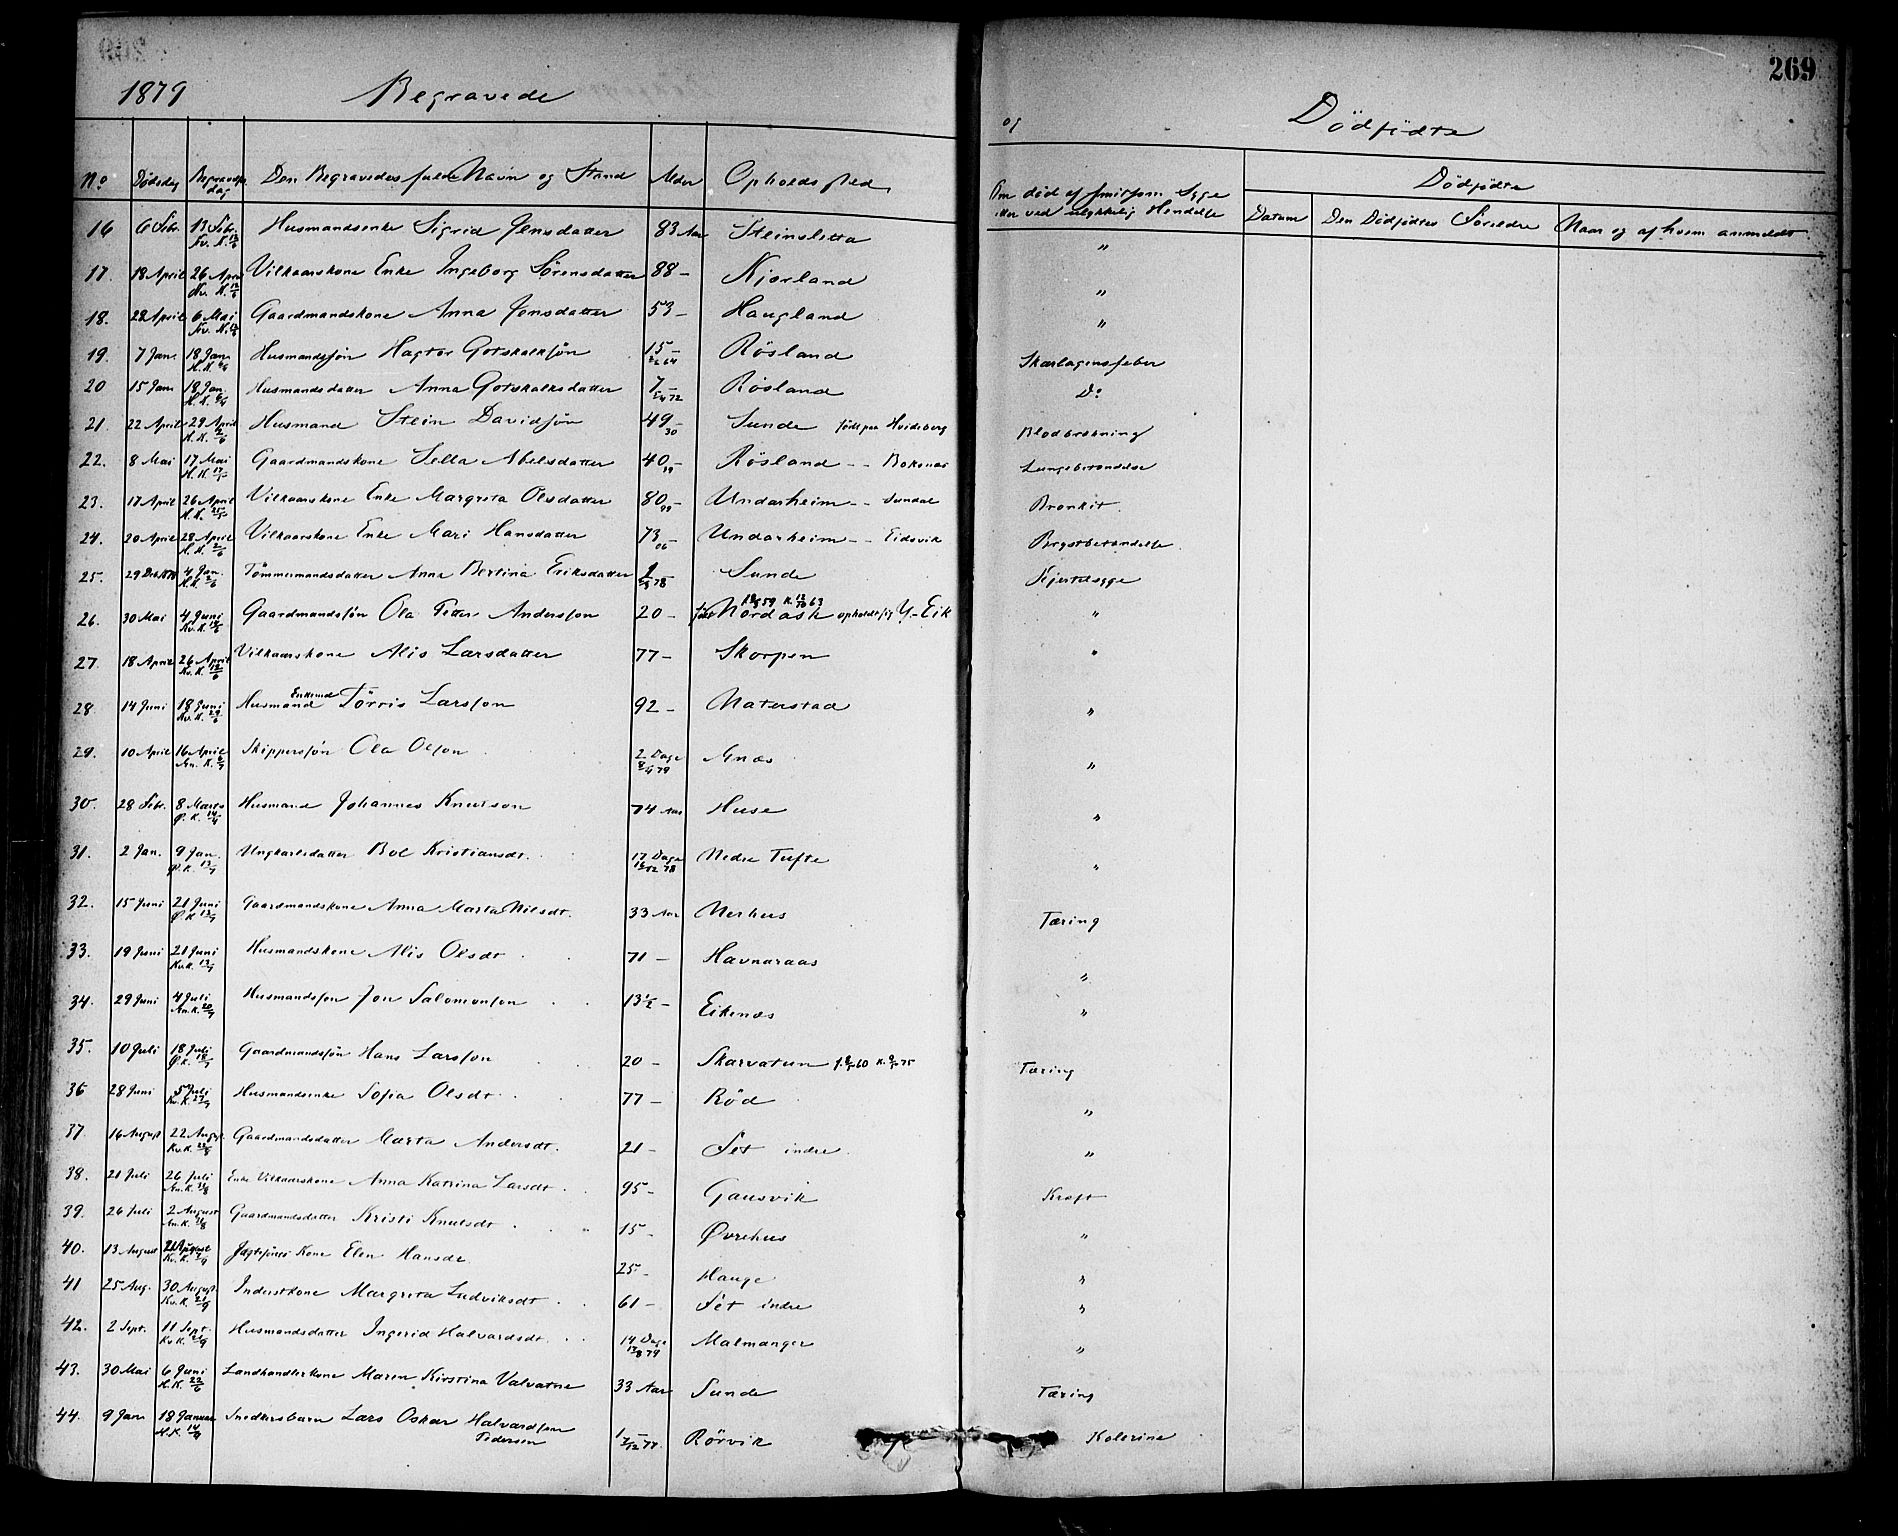 269
1879 Begravede og Dödfödte
No Dödsdag Begravelsesdag Den Begravedes fulde Navn og Stand Alder Opholdssted Om död af smitsom Syge eller ved ulykkelig Hendelse Dödfödte
Datum Den Dödfödtes Foreldre Naar og af hvem anmeldt
16 6 Febr. 13 Febr. Husmandsenke Sigrid Jensdatter 83 Aar Steinsletta "
Kv. K.
17. 18 April 26 April Vilkaarskone Enke Ingeborg Sörensdatter 88 - Kjærland "
Kv. K.
18. 28 April 6 Mai Gaardmandskone Anna Jensdatter 53 - Haugland "
Kv. K.
19. 7 Jan. 18 Jan. Husmandssön Hagtor Gotskalksön 15 - Rösland Skarlagensfeber
H. K.
20 15 Jan. 18 Jan. Husmandsdatter Anna Gotskalksdatter 7 - Rösland Do
H. K.
21. 22 April 29 April Husmand Stein Davidsön 49 - Sunde födt paa Hvideberg Blodbrækning
H. K. 30
22. 8 Mai 17 Mai Gaardmandskone Sella Abelsdatter 40 - Rösland - - Boknæs Lungebetændelse
H. K.
23. 17 April 26 April Vilkaarskone Enke Margreta Olsdatter 80 - Undarheim - - Sundal Bronkit.
H. K. 99
24. 20 April 28 April Vilkaarskone Enke Mari Hansdatter 73 - Undarheim - - Eidsvik Brystbetændelse.
H. K. 06
25. 29 Dec. 1878 4 Jan. Tömmermandsdatter Anna Bertina Eriksdatter Sunde Kjertelsyge
H. K.
26. 30 Mai 4 Juni Gaardmandssön Ola Petter Andersson 20 - Nordask opholdt sig Y. Eik "
Kv. K.
27. 18 April 26 April Vilkaarskone Alis Larsdatter 77 - Skorpen "
Kv. K.
28. 14 Juni 18 Juni Husmand Enkemd Törris Larsson 92 - Naterstad "
Kv. K.
29. 10 April 16 April Skipperssön Ola Olson 2 Dage Gnæs "
An. K.
30. 28 Febr. 8 Marts Husmand Johannes Knutson 74 Aar Huse "
Ø. K.
31. 2 Jan. 9 Jan. Ungkarlsdatter Bol Kristiansdt. 17 Dage Nedre Tufte "
Ø. K.
32. 15 Juni 21 Juni Gaardmandskone Anna Marta Nilsdt. 33 Aar Nerhus Tæring
Ø. K.
33. 19 Juni 21 Juni Husmandskone Alis Olsdt 71 - Havnaraas "
Kv. K.
34. 29 Juni 4 Juli Husmandssön Jon Salomonson 13 1/2 - Eikenæs "
An. K.
35. 10 Juli 18 Juli Gaardmandssön Hans Larsson 20 - Skarvatun Tæring
Ø. K.
36 28 Juni 5 Juli Husmandsenke Sofia Olsdt. 77 - Röd "
Kv. K.
37. 16 August 22 August Gaardmandsdatter Marta Andersdt. 21 - Set indre. "
Kv. K.
38. 21 Juli 26 Juli Enke Vilkaarskone Anna Katrina Larsdt. 95 - Gausvik Kræft
An. K.
39. 26 Juli 2 August Gaardmandsdatter Kristi Knutsdt 15 - Øvrehus "
An. K.
40. 13 August 21 August Kone Elen Hansdt 25 - Hauge "
Kv. K.
41 25 Aug. 30 August Inderstkone Margreta Ludviksdt. 61 - Set indre "
Kv. K.
42. 2 Sept. 11 Sept. Husmandsdatter Ingerid Halvardsdt. 14 Dage Malmanger "
Kv. K.
43. 30 Mai 6 Juni Landhandlerkone Maren Kirstina Valvatne 33 Aar Sunde Tæring
H. K.
44. 9 Jan. 18 Januar Snedkersbarn Lars Oskar Halvardsen 1 Rörvik Kolerine
H. K. Pedersen